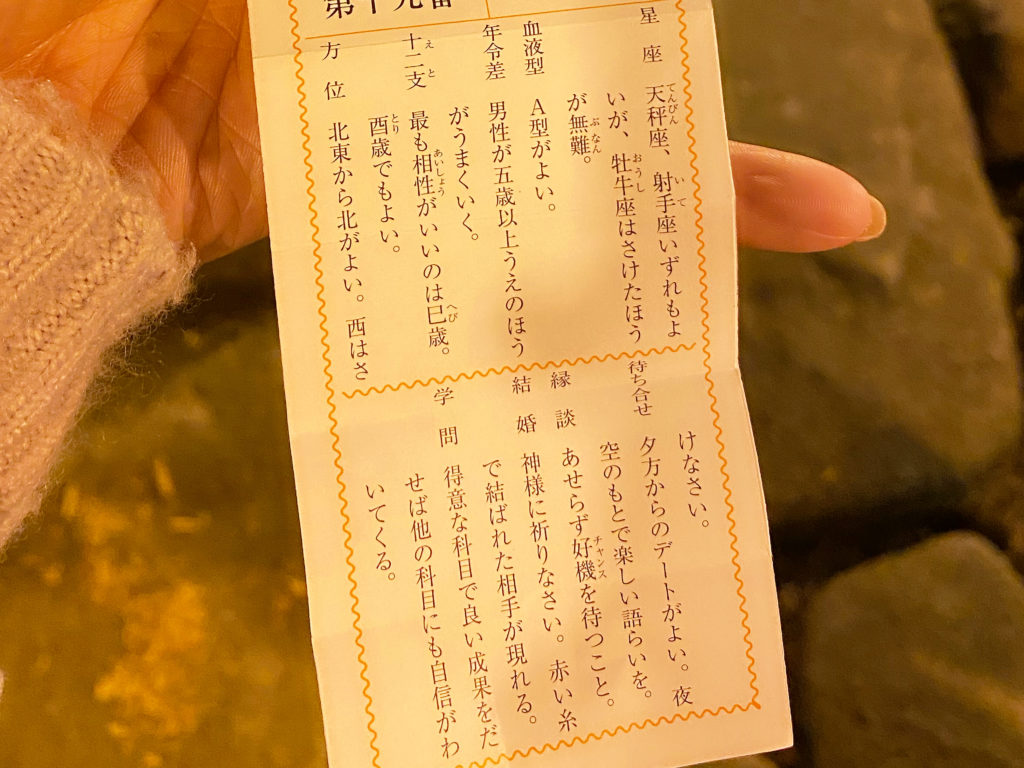 第十九番
星座
天秤座、射手座いずれもよ
いが、牡牛座はさけたほう
が無難。
血液型
A型がよい。
年令差
男性が五歳以上うえのほう
がうまくいく。
十二支
最も相性がいいのは巳歳。
酉歳でもよい。
方位
北東から北がよい。西はさ
けなさい。
待ち合せ
夕方からのデートがよい。夜
空のもとで楽しい語らいを。
縁談
あせらず好機を待つこと。
結婚
神様に祈りなさい。赤い糸
で結ばれた相手が現れる。
学問
得意な科目で良い成果をだ
せば他の科目にも自信がわ
いてくる。